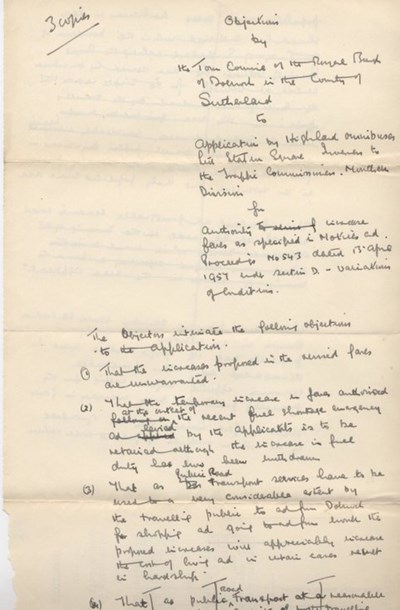 3 copies
Objections
by
the Town Council of the Royal Burgh
of Dornoch in the County of
Sutherland
to
Application by Highland Omnibuses
Ltd Station Square Inverness to
the Traffic Commissioners. Northern
Division
for
Authority to increase
fares as specified in Notices and
Proceedings No 543 dated 13 April
1957 under section D. - Variations
of Conditions.
The Objectors intimate the following objections
to the Application.
(1) That the increases proposed in the revised fares
are unwarranted.
(2) That the temporary increase in fares authorised
at the outset of
the recent fuel shortage emergency
and levied by the Applicants is to be
retained although the increase in fuel
duty has been withdrawn
Public Road
(3) That as transport services have to be
used to a very considerable extent by
the travelling public to and from Dornoch
for shopping and going to and from work the
proposed increases will appreciably increase
the cost of living and in certain cases result
in hardship.
Road
(4) That as public transport at a reasonable